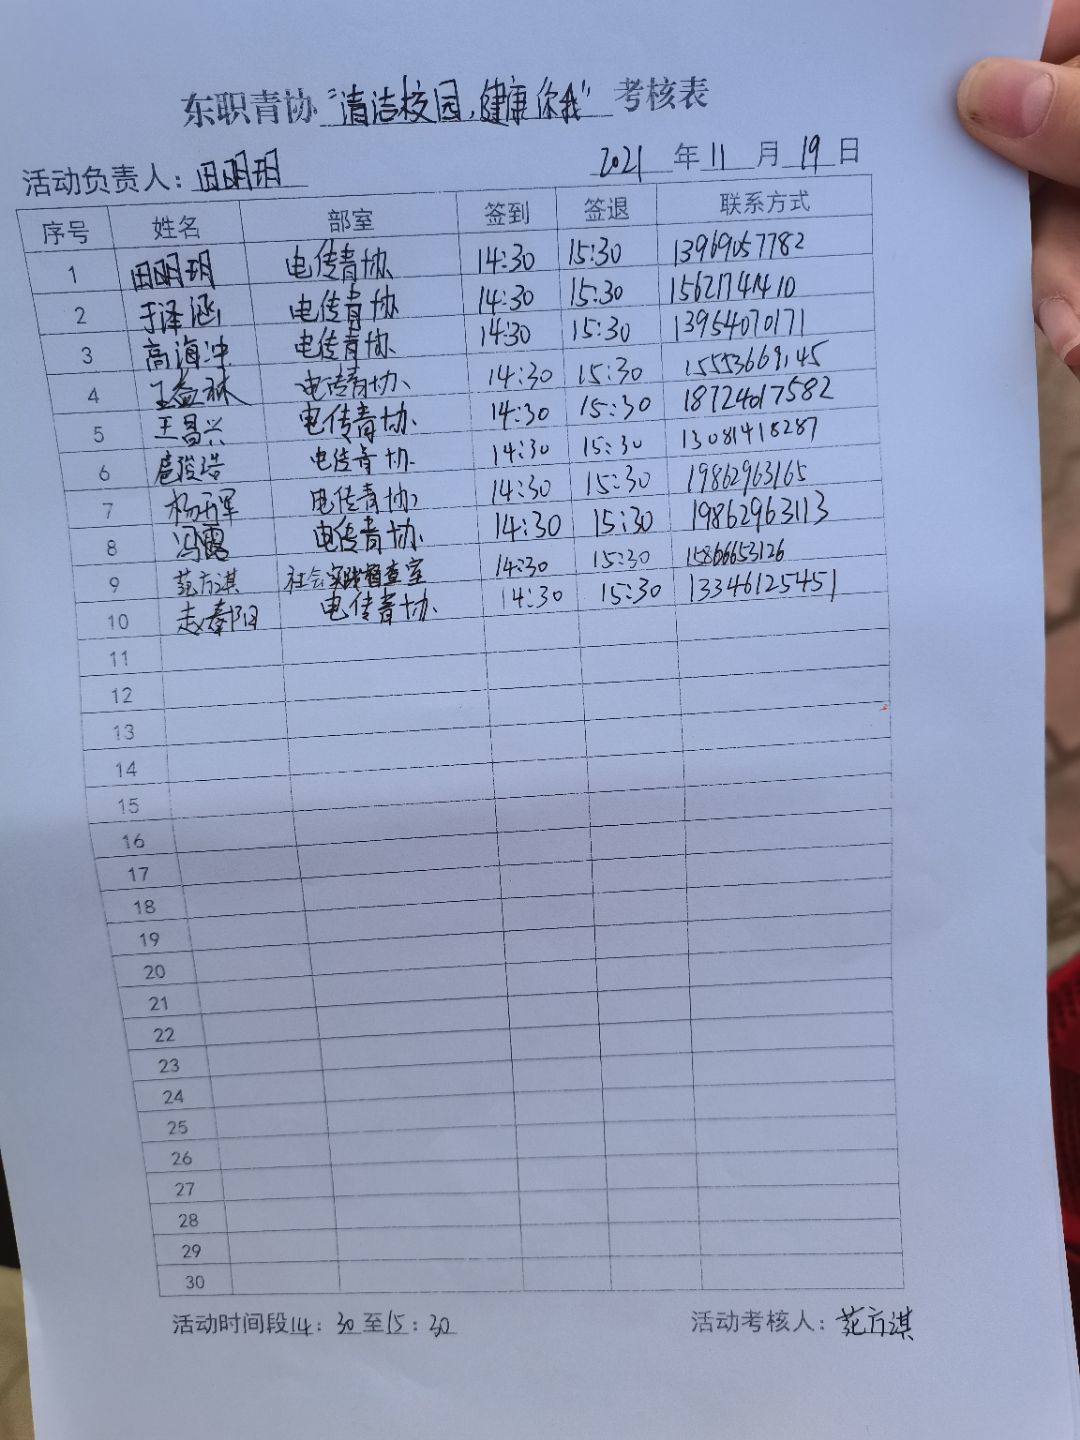 东职青协“清洁校园,健康你我”考核表
活动负责人：田明玥 2021年11月19日
序号 姓名 部室 签到 签退 联系方式
1 田明玥 电传青协 14:30 15:30 13969057782
2 于泽涵 电传青协 14:30 15:30 15621741410
3 高海冲 电传青协 14:30 15:30 13954070171
4 王益林 电传青协 14:30 15:30 15553669145
5 王昌兴 电传青协 14:30 15:30 18724017582
6 扈骏浩 电传青协 14:30 15:30 13081418287
7 杨开军 电传青协 14:30 15:30 19862963165
8 冯露 电传青协 14:30 15:30 19862963113
9 范方淇 社会实践督查室 14:30 15:30 15866653126
10 赵秦阳 电传青协 14:30 15:30 13346125451
11
12
13
14
15
16
17
18
19
20
21
22
23
24
25
26
27
28
29
30
活动时间段14：30至15：30 活动考核人：范方淇